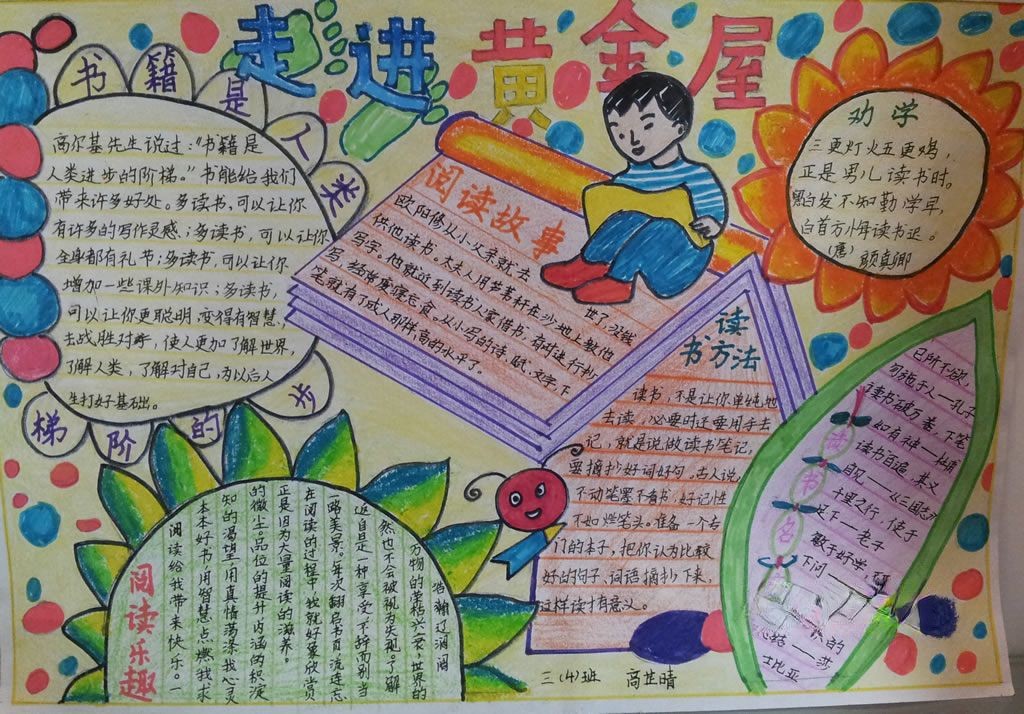 走进黄金屋
书籍是人类
高尔基先生说过:“书籍是
人类进步的阶梯。”书能给我们
带来许多好处。多读书,可以让你
有许多的写作灵感;多读书,可以让你
全身都有礼节;多读书,可以让你
增加一些课外知识;多读书,
可以让你更聪明,变得有智慧,
去战胜对手,使人更加了解世界,
了解人类,了解对自己,为以后人
生打好基础。
步的阶梯
阅读故事
欧阳修从小父亲就去
世了,没钱
供他读书。太夫人用芦苇杆在沙地上教他
写字。他就近到读书人家借书,有时进行抄
写,废寝忘食。从小写的诗、赋、文字,下
笔就有了成人那样高的水平了。
劝学
三更灯火五更鸡,
正是男儿读书时。
黑发不知勤学早,
白首方悔读书迟。
(唐)颜真卿
读
书方法
读书,不是让你单纯地
去读,必要时还要用手去
记,就是说做读书笔记,
要摘抄好词好句。古人说,
不动笔墨不看书,好记性
不如烂笔头。准备一个专
门的本子,把你认为比较
好的句子、词语摘抄下来,
这样读才有意义。
读书名
己所不欲,
勿施于人—孔子
读书破万卷,下笔
如有神—杜甫
读书百遍,其义
自见——《三国志》
千里之行,始于
足下—老子
敏而好学,
下问
的
——莎
士比亚
阅读乐趣
阅读给我带来快乐。一
本本好书用智慧点燃我求
知的渴望,用真情荡涤我心灵
的微尘。品位的提升,内涵的积淀
正是因为大量阅读的滋养。
在阅读的过程中,我就好像欣赏
一路美景。每次翻启书页,流连忘
返自是一种享受,不辞而别当
然也不会被视为失礼。了解
万物的荣枯兴衰,世界的
浩瀚辽阔
三(4)班 高芷晴